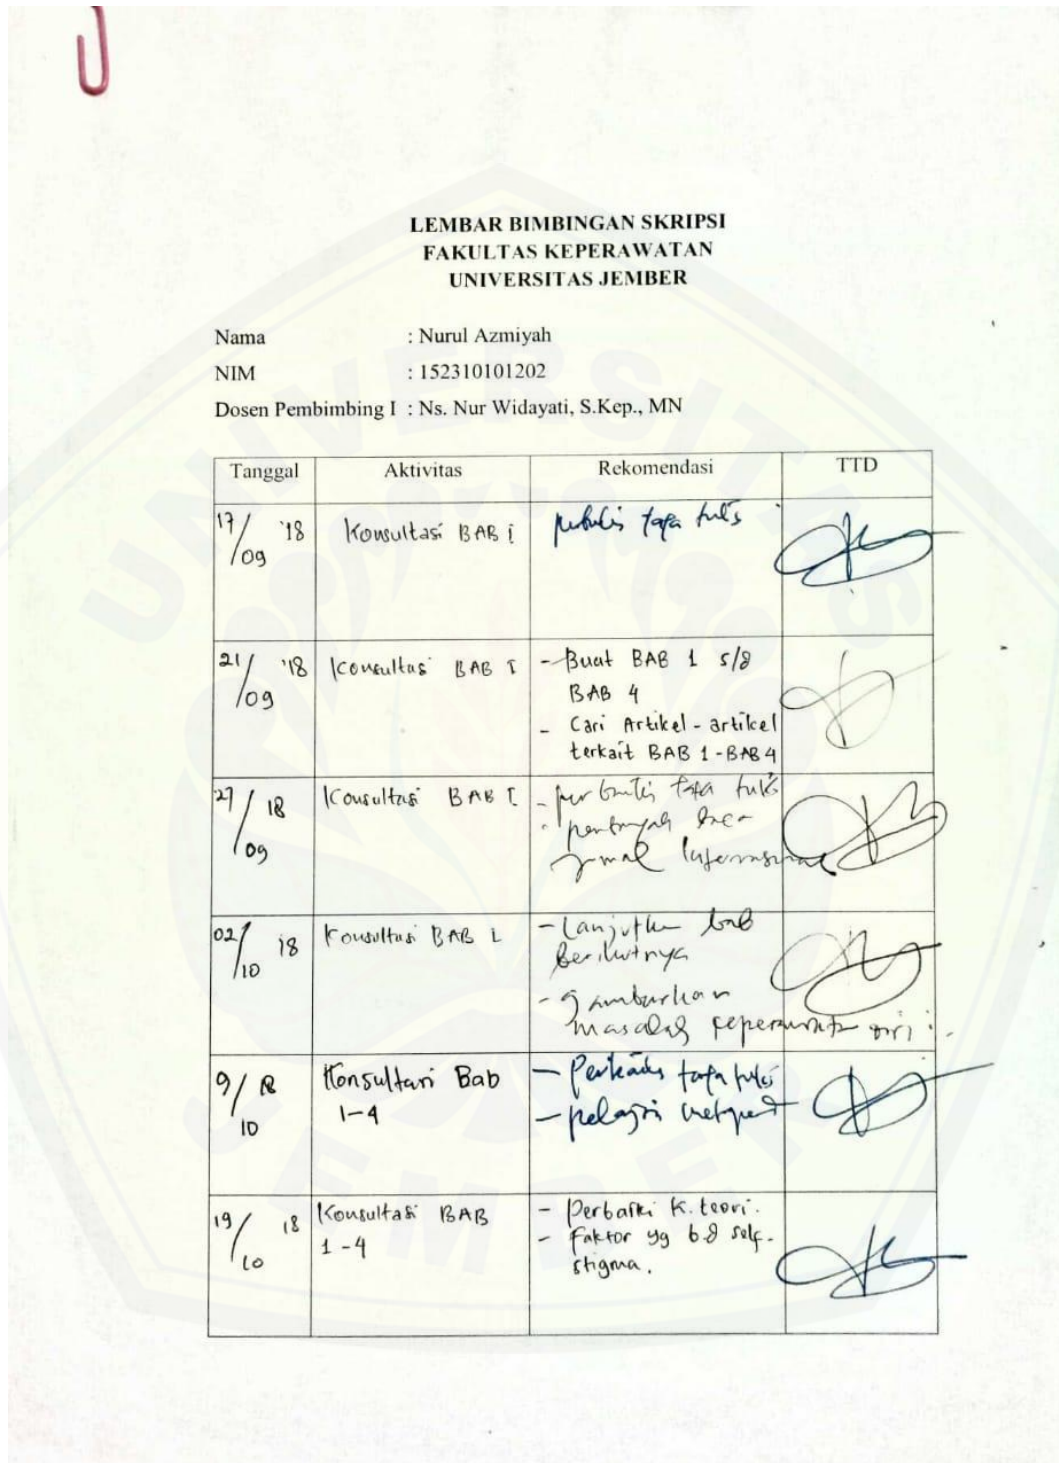 LEMBAR BIMBINGAN SKRIPSI
FAKULTAS KEPERAWATAN
UNIVERSITAS JEMBER
Nama : Nurul Azmiyah
NIM : 152310101202
Dosen Pembimbing I : Ns. Nur Widayati, S.Kep., MN
Tanggal Aktivitas Rekomendasi TTD
17/09 '18 Konsultasi BAB I tata tulis
21/09 '18 Konsultasi BAB I - Buat BAB 1 s/d
BAB 4
- Cari Artikel-artikel
terkait BAB 1-BAB 4
27/09 18 Konsultasi BAB I - tata tulis
02/10 18 Konsultasi BAB I - Lanjutkan bab
berikutnya
- gambarkan
masalah
9/10 18 Konsultasi Bab - tata tulis
1-4 - pelajari
19/10 18 Konsultasi BAB - Perbaiki k. teori.
1-4 - Faktor yg b.d self-
stigma.
UNIVERSITAS
JEMBER